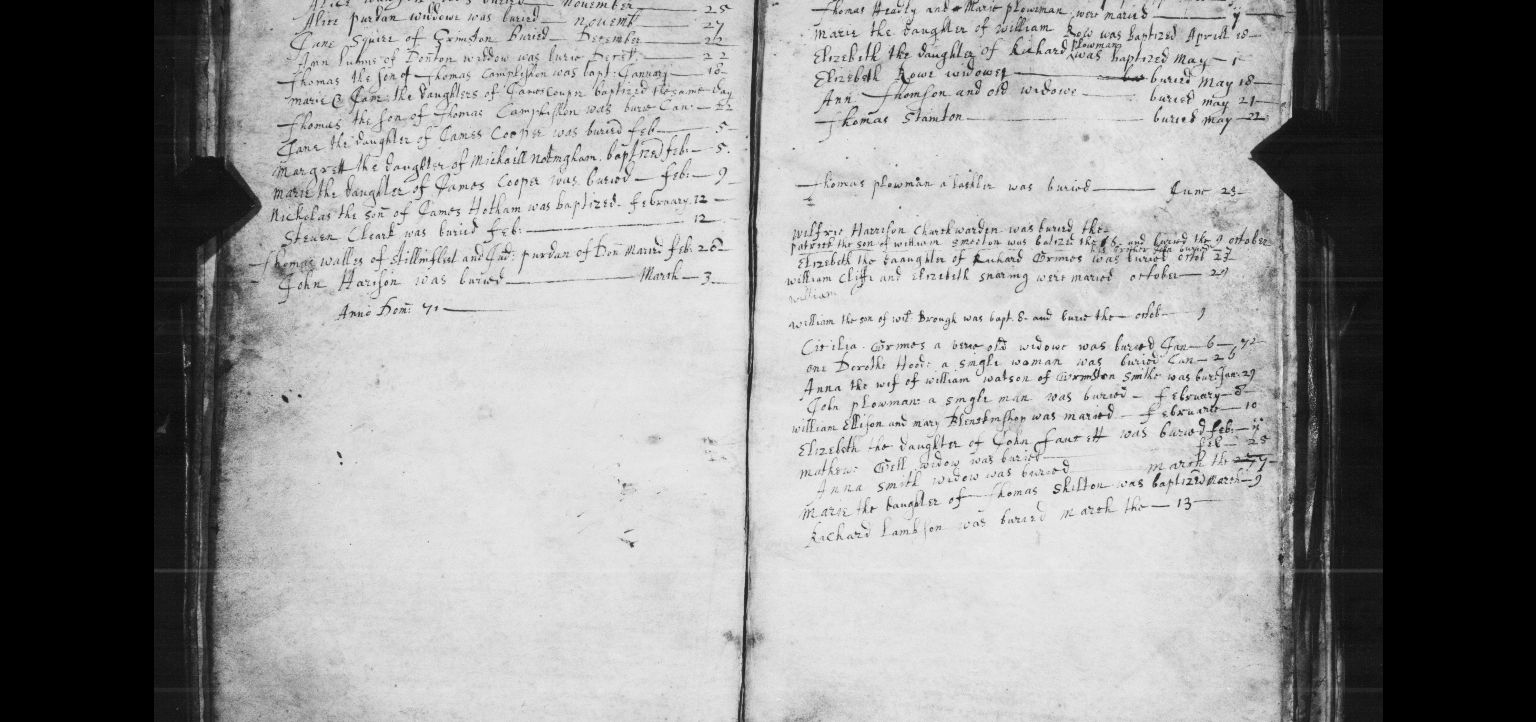 Alice purdan widowe was buried novemb 27
Jane Squire of Grimston buried December 22
Ann of Donton widow was burie Decet. 22
Thomas the son of Thomas Camplishon was bapt: January 18
marie & Jane the daughters of James Couper baptized the same day
Thomas the son of Thomas Camphishon was burie Jan: 22
Jane the daughter of James Cooper was buried feb 5
Margrett the daughter of Michaell Notingham baptized feb: 5.
Marie the daughter of James Cooper was buried feb: 9
Nicholas the son of James Hotham was baptized. february 12
Steven Cleark was buried feb: 12
Thomas walles of Stillinflest and Jad: purdan of Don Maried feb: 28
John Harison was buried March 3
Anno Dom: 71
Thomas Hearty and Marie plowman were maried ij
Marie the daughter of William Row was baptized Aprill 18
Elizebeth the daughter of Richard plowman was baptized May 1
Elizebeth Rowe widowe buried May 18
Ann Thomson and old widowe buried may 21
Thomas Stamton buried May 22
Thomas plowman a was buried June 23
Wilfrie Harrison Churchwarden was buried the
patrick the son of william Smeeton was batize the 8 and buried the 9 october
his brother buried
Elizebeth the daughter of Richard Grimes was buried octob 23
william Cliffe and Elizebeth Snaring were maried october 29
william
william the son of wil: Brough was bapt. 8 and burie the octob 9
Cicilia Grimes a verie old widowe was buried Jan 6 72
one Dorothe Hood: a single woman was buried Jan 26
Anna the wif of william watson of Grimston Smithe was buri Jan: 29
John plowman: a single man was buried february 8
william Ellison and mary Blenkinshop was maried februarie 10
Elizebeth the daughter of John faucett was buried feb: ij
mathew: Gell widow was buried feb 25
Anna Smith widow was buried march the 7
Marie the daughter of Thomas Skilton was baptized March 9
Richard Lambson was buried march the 13